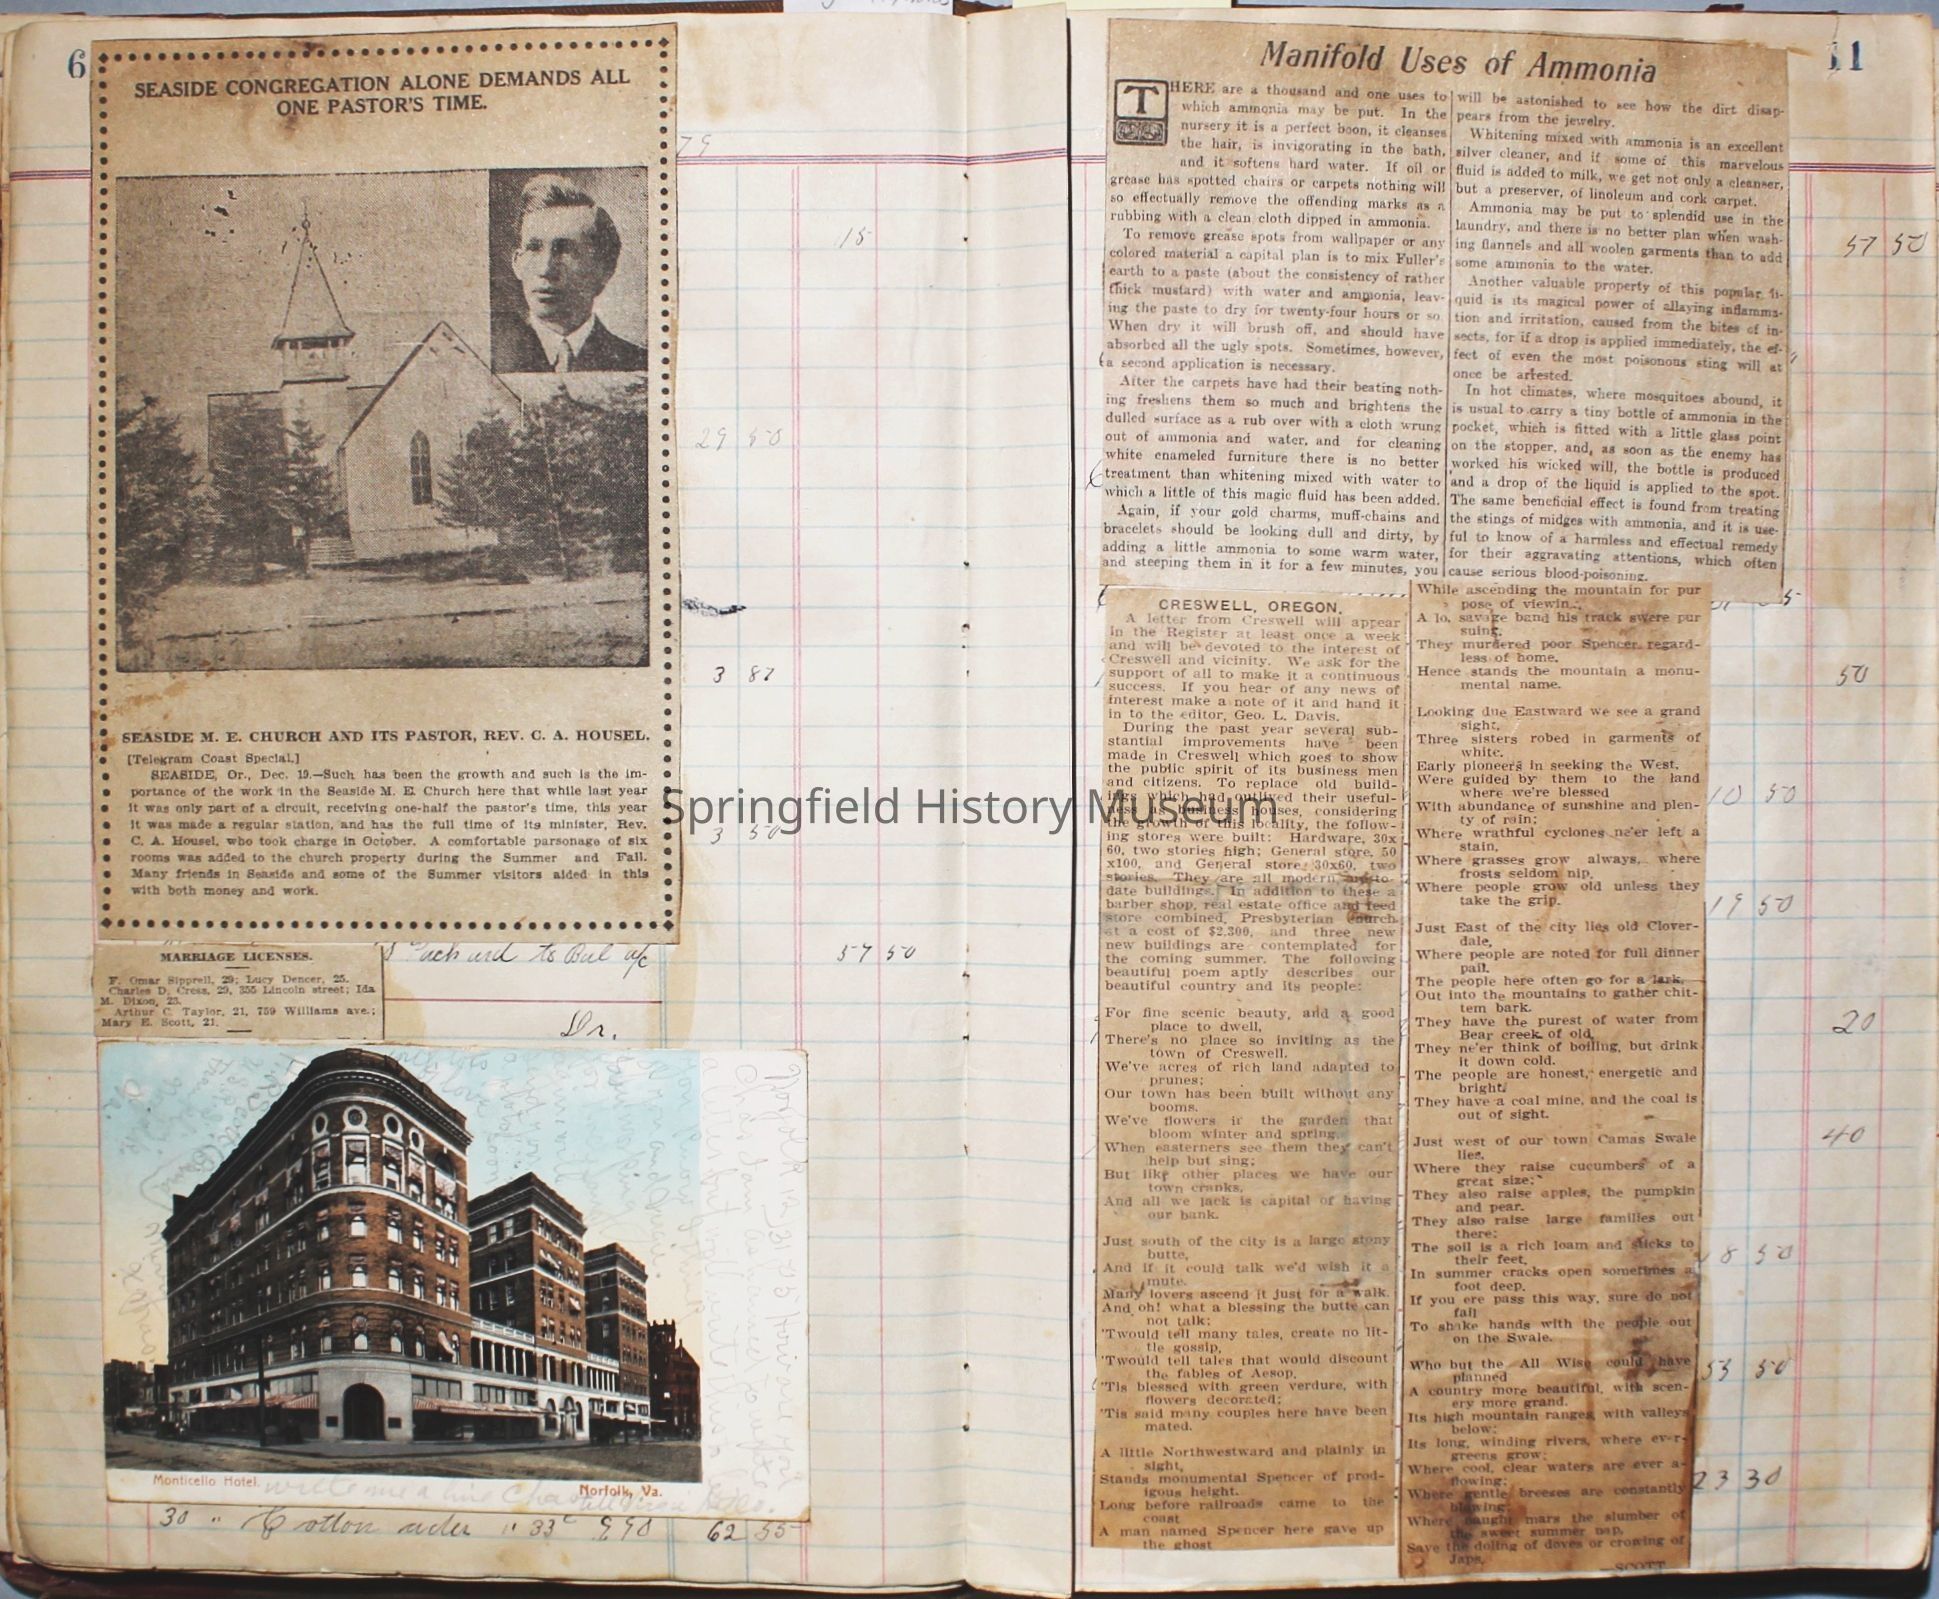 6
SEASIDE CONGREGATION ALONE DEMANDS ALL
ONE PASTOR'S TIME.
SEASIDE M. E. CHURCH AND ITS PASTOR, REV. C. A. HOUSEL.
[Telegram Coast Special.]
SEASIDE, Or., Dec. 19.—Such has been the growth and such is the im-
portance of the work in the Seaside M. E. Church here that while last year
it was only part of a circuit, receiving one-half the pastor's time, this year
it was made a regular station, and has the full time of its minister, Rev.
C. A. Housel, who took charge in October. A comfortable parsonage of six
rooms was added to the church property during the Summer and Fall.
Many friends in Seaside and some of the Summer visitors aided in this
with both money and work.
MARRIAGE LICENSES.
F. Omar Sipprell, 29; Lucy Dencer, 25.
Charles D. Cress, 29, 355 Lincoln street; Ida
M. Dixon, 23.
Arthur C. Taylor, 21, 759 Williams ave.;
Mary E. Scott, 21.
to Bal a/c
Dr.
Monticello Hotel.
Norfolk, Va.
write me a line
30 " Cotton " 33 9 90 62 55
79
15
29 50
3 87
3 50
57 50
Springfield History Museum
11
Manifold Uses of Ammonia
THERE are a thousand and one uses to
which ammonia may be put. In the
nursery it is a perfect boon, it cleanses
the hair, is invigorating in the bath,
and it softens hard water. If oil or
grease has spotted chairs or carpets nothing will
so effectually remove the offending marks as a
rubbing with a clean cloth dipped in ammonia.
To remove grease spots from wallpaper or any
colored material a capital plan is to mix Fuller's
earth to a paste (about the consistency of rather
thick mustard) with water and ammonia, leav-
ing the paste to dry for twenty-four hours or so.
When dry it will brush off, and should have
absorbed all the ugly spots. Sometimes, however,
a second application is necessary.
After the carpets have had their beating noth-
ing freshens them so much and brightens the
dulled surface as a rub over with a cloth wrung
out of ammonia and water, and for cleaning
white enameled furniture there is no better
treatment than whitening mixed with water to
which a little of this magic fluid has been added.
Again, if your gold charms, muff-chains and
bracelets should be looking dull and dirty, by
adding a little ammonia to some warm water,
and steeping them in it for a few minutes, you
will be astonished to see how the dirt disap-
pears from the jewelry.
Whitening mixed with ammonia is an excellent
silver cleaner, and if some of this marvelous
fluid is added to milk, we get not only a cleanser,
but a preserver, of linoleum and cork carpet.
Ammonia may be put to splendid use in the
laundry, and there is no better plan when wash-
ing flannels and all woolen garments than to add
some ammonia to the water.
Another valuable property of this popular li-
quid is its magical power of allaying inflamma-
tion and irritation, caused from the bites of in-
sects, for if a drop is applied immediately, the ef-
fect of even the most poisonous sting will at
once be arrested.
In hot climates, where mosquitoes abound, it
is usual to carry a tiny bottle of ammonia in the
pocket, which is fitted with a little glass point
on the stopper, and, as soon as the enemy has
worked his wicked will, the bottle is produced
and a drop of the liquid is applied to the spot.
The same beneficial effect is found from treating
the stings of midges with ammonia, and it is use-
ful to know of a harmless and effectual remedy
for their aggravating attentions, which often
cause serious blood-poisoning.
CRESWELL, OREGON.
A letter from Creswell will appear
in the Register at least once a week
and will be devoted to the interest of
Creswell and vicinity. We ask for the
support of all to make it a continuous
success. If you hear of any news of
interest make a note of it and hand it
in to the editor, Geo. L. Davis.
During the past year several sub-
stantial improvements have been
made in Creswell which goes to show
the public spirit of its business men
and citizens. To replace old build-
ings which had outlived their useful-
ness as business houses, considering
the growth of this locality, the follow-
ing stores were built: Hardware, 30x
60, two stories high; General store, 50
x100, and General store 30x60, two
stories. They are all modern, up-to-
date buildings. In addition to these a
barber shop, real estate office and feed
store combined, Presbyterian church
at a cost of $2,300, and three new
new buildings are contemplated for
the coming summer. The following
beautiful poem aptly describes our
beautiful country and its people:
For fine scenic beauty, and a good
place to dwell,
There's no place so inviting as the
town of Creswell.
We've acres of rich land adapted to
prunes;
Our town has been built without any
booms.
We've flowers ir the garden that
bloom winter and spring,
When easterners see them they can't
help but sing;
But like other places we have our
town cranks,
And all we lack is capital of having
our bank.
Just south of the city is a large stony
butte,
And if it could talk we'd wish it a
mute.
Many lovers ascend it just for a walk.
And oh! what a blessing the butte can
not talk;
'Twould tell many tales, create no lit-
tle gossip,
'Twould tell tales that would discount
the fables of Aesop.
'Tis blessed with green verdure, with
flowers decorated;
'Tis said many couples here have been
mated.
A little Northwestward and plainly in
sight,
Stands monumental Spencer of prod-
igous height.
Long before railroads came to the
coast
A man named Spencer here gave up
the ghost
While ascending the mountain for pur
pose of viewin
A lo. savage band his track swere pur
suing.
They murdered poor Spencer regard-
less of home,
Hence stands the mountain a monu-
mental name.
Looking due Eastward we see a grand
sight,
Three sisters robed in garments of
white.
Early pioneers in seeking the West,
Were guided by them to the land
where we're blessed
With abundance of sunshine and plen-
ty of rain;
Where wrathful cyclones ne'er left a
stain,
Where grasses grow always, where
frosts seldom nip,
Where people grow old unless they
take the grip.
Just East of the city lies old Clover-
dale,
Where people are noted for full dinner
pail.
The people here often go for a lark,
Out into the mountains to gather chit-
tem bark.
They have the purest of water from
Bear creek of old,
They ne'er think of boiling, but drink
it down cold.
The people are honest, energetic and
bright.
They have a coal mine, and the coal is
out of sight.
Just west of our town Camas Swale
lies.
Where they raise cucumbers of a
great size;
They also raise apples, the pumpkin
and pear.
They also raise large families out
there;
The soil is a rich loam and sticks to
their feet,
In summer cracks open sometimes a
foot deep.
If you ere pass this way, sure do not
fail
To shake hands with the people out
on the Swale.
Who but the All Wise could have
planned
A country more beautiful, with scen-
ery more grand.
Its high mountain ranges with valleys
below;
Its long, winding rivers, where ever-
greens grow;
Where cool, clear waters are ever a-
flowing;
Where gentle breezes are constantly
blowing;
Where naught mars the slumber of
the sweet summer nap,
Save the doling of doves or crowing of
Japs.
—SCOTT
57 50
50
10 50
19 50
20
40
8 50
53 50
23 30